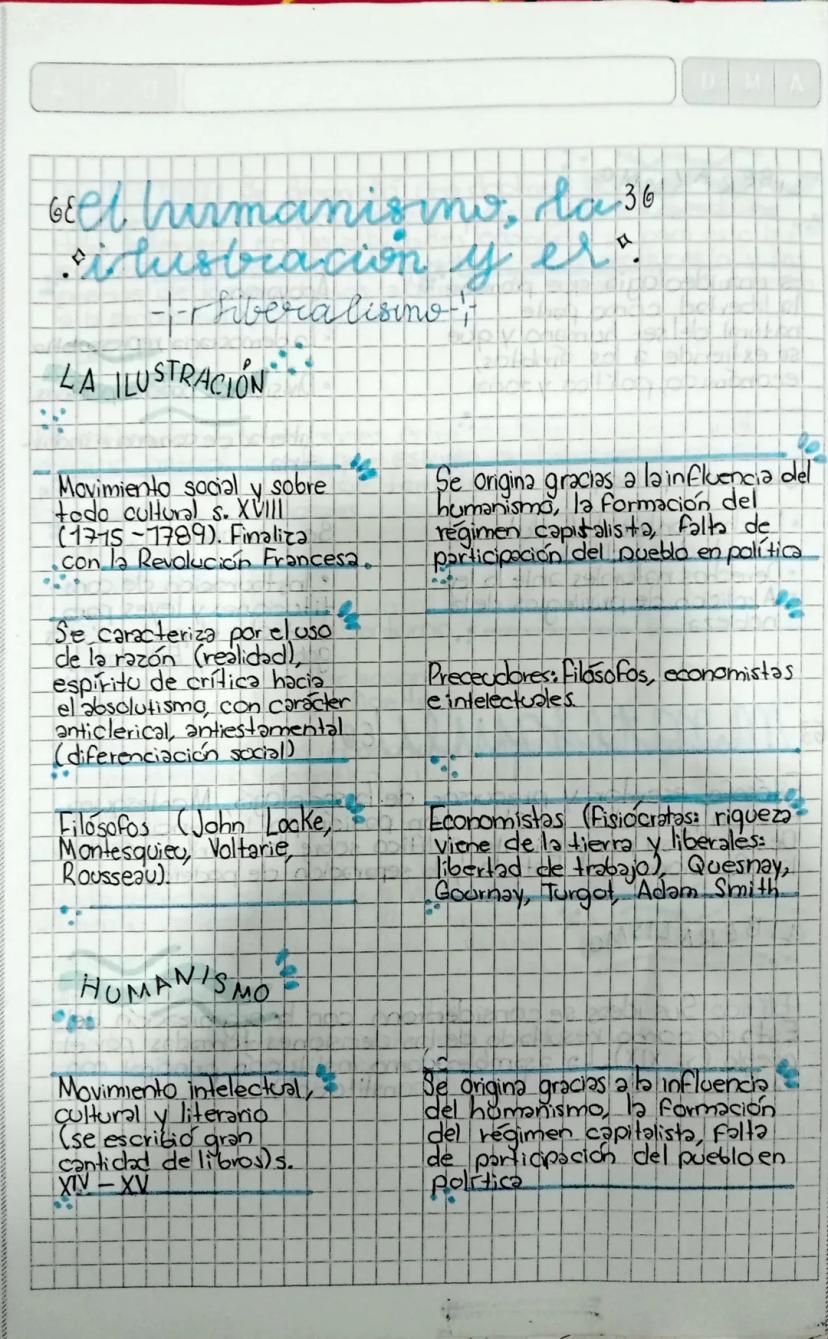 El humanismo, la
ilustración y el
liberalismo
LA ILUSTRACIÓN
Movimiento social y sobre
todo cultural s. XVIII
(1715 - 1789). Finaliza
con la Revolución Francesa.
Se origina gracias a la influencia del
humanismo, la formación del
régimen capitalista, falta de
participación del pueblo en política
Se caracteriza por el uso
de la razón (realidad),
espíritu de crítica hacia
el absolutismo, con carácter
anticlerical, antiestamental
(diferenciación social)
Preceudores: Filósofos, economistas
e intelectuales.
Filósofos (John Locke,
Montesquieu, Voltarie,
Rousseau).
Economistas (Fisiócratas: riqueza
viene de la tierra y liberales:
libertad de trabajo), Quesnay,
Gournay, Turgot, Adam Smith
HUMANISMO
Movimiento intelectual,
cultural y literario
(se escribió gran
cantidad de libros) s.
XIV - XV
Se origina gracias a la influencia
del humanismo, la formación
del régimen capitalista, falta
de participación del pueblo en
política